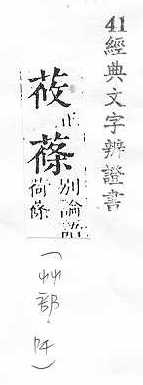 41經典文字辨證書
莜正
蓧別論語
荷蓧
(艸部·